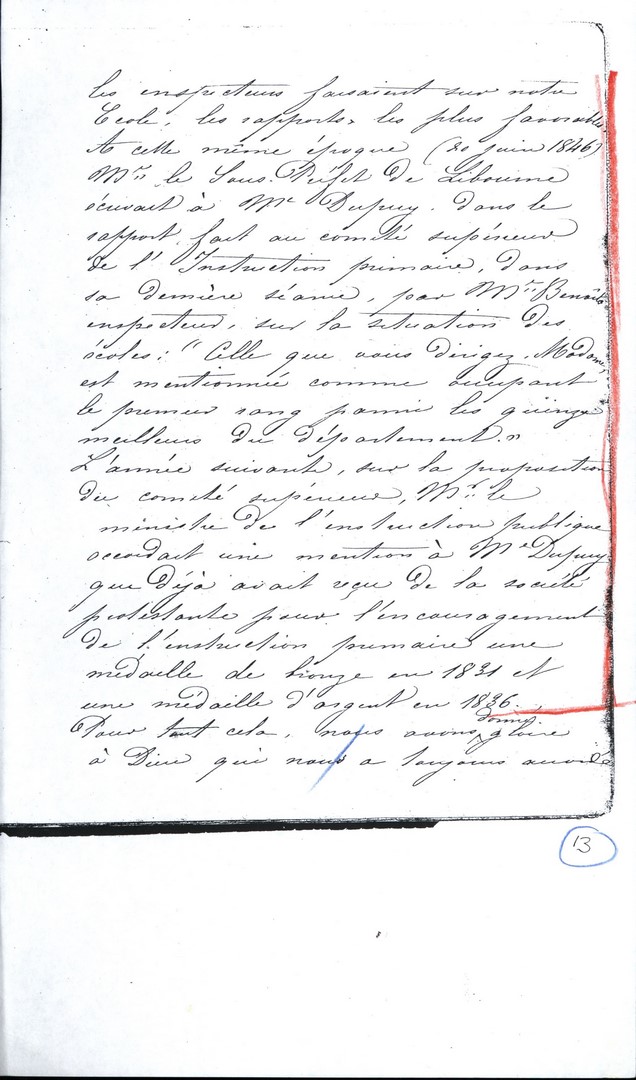 les inspecteurs faisaient sur notre
Ecole, les rapports, les plus favorables.
A cette même époque (20 juin 1846)
Mr. le Sous-Préfet de Libourne
écrivait à Me Dupuy. dans le
rapport, fait au comité supérieur
de l'Instruction primaire, dans
sa dernière séance, par Mr. Benoit
inspecteur, sur la situation des
écoles: "Celle que vous dirigez, Madame,
est mentionnée comme occupant
le premier rang parmi les quinze
meilleurs du département."
L'année suivante, sur la proposition
du comité supérieur, Mr. le
ministre de l'instruction publique
accordait une mention à Me Dupuy
que déjà avait reçu de la société
protestante pour l'encouragement
de l'instruction primaire une
médaille de bronze en 1831 et
une médaille d'argent en 1836.
donné.
Pour tout cela, nous avons gloire
à Dieu qui nous a toujours
13